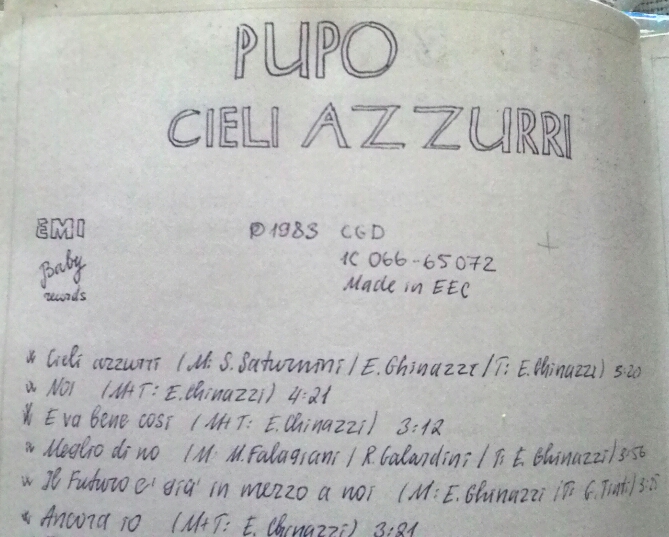 PUPO
CIELI AZZURRI
EMI ℗1983 CGD
Baby 1C 066-65072
records Made in EEC
* Cieli azzurri (M: S. Saturnini / E. Ghinazzi / T: E. Ghinazzi) 5:20
* Noi (M+T: E. Ghinazzi) 4:21
* E va bene cosi (M+T: E. Ghinazzi) 3:12
* Meglio di no (M: M. Falagiani / R. Galardini / T: E. Ghinazzi) 3:56
* Il Futuro e' gia' in mezzo a noi (M: E. Ghinazzi / T: G.
* Ancora io (M+T: E. Ghinazzi) 3:21